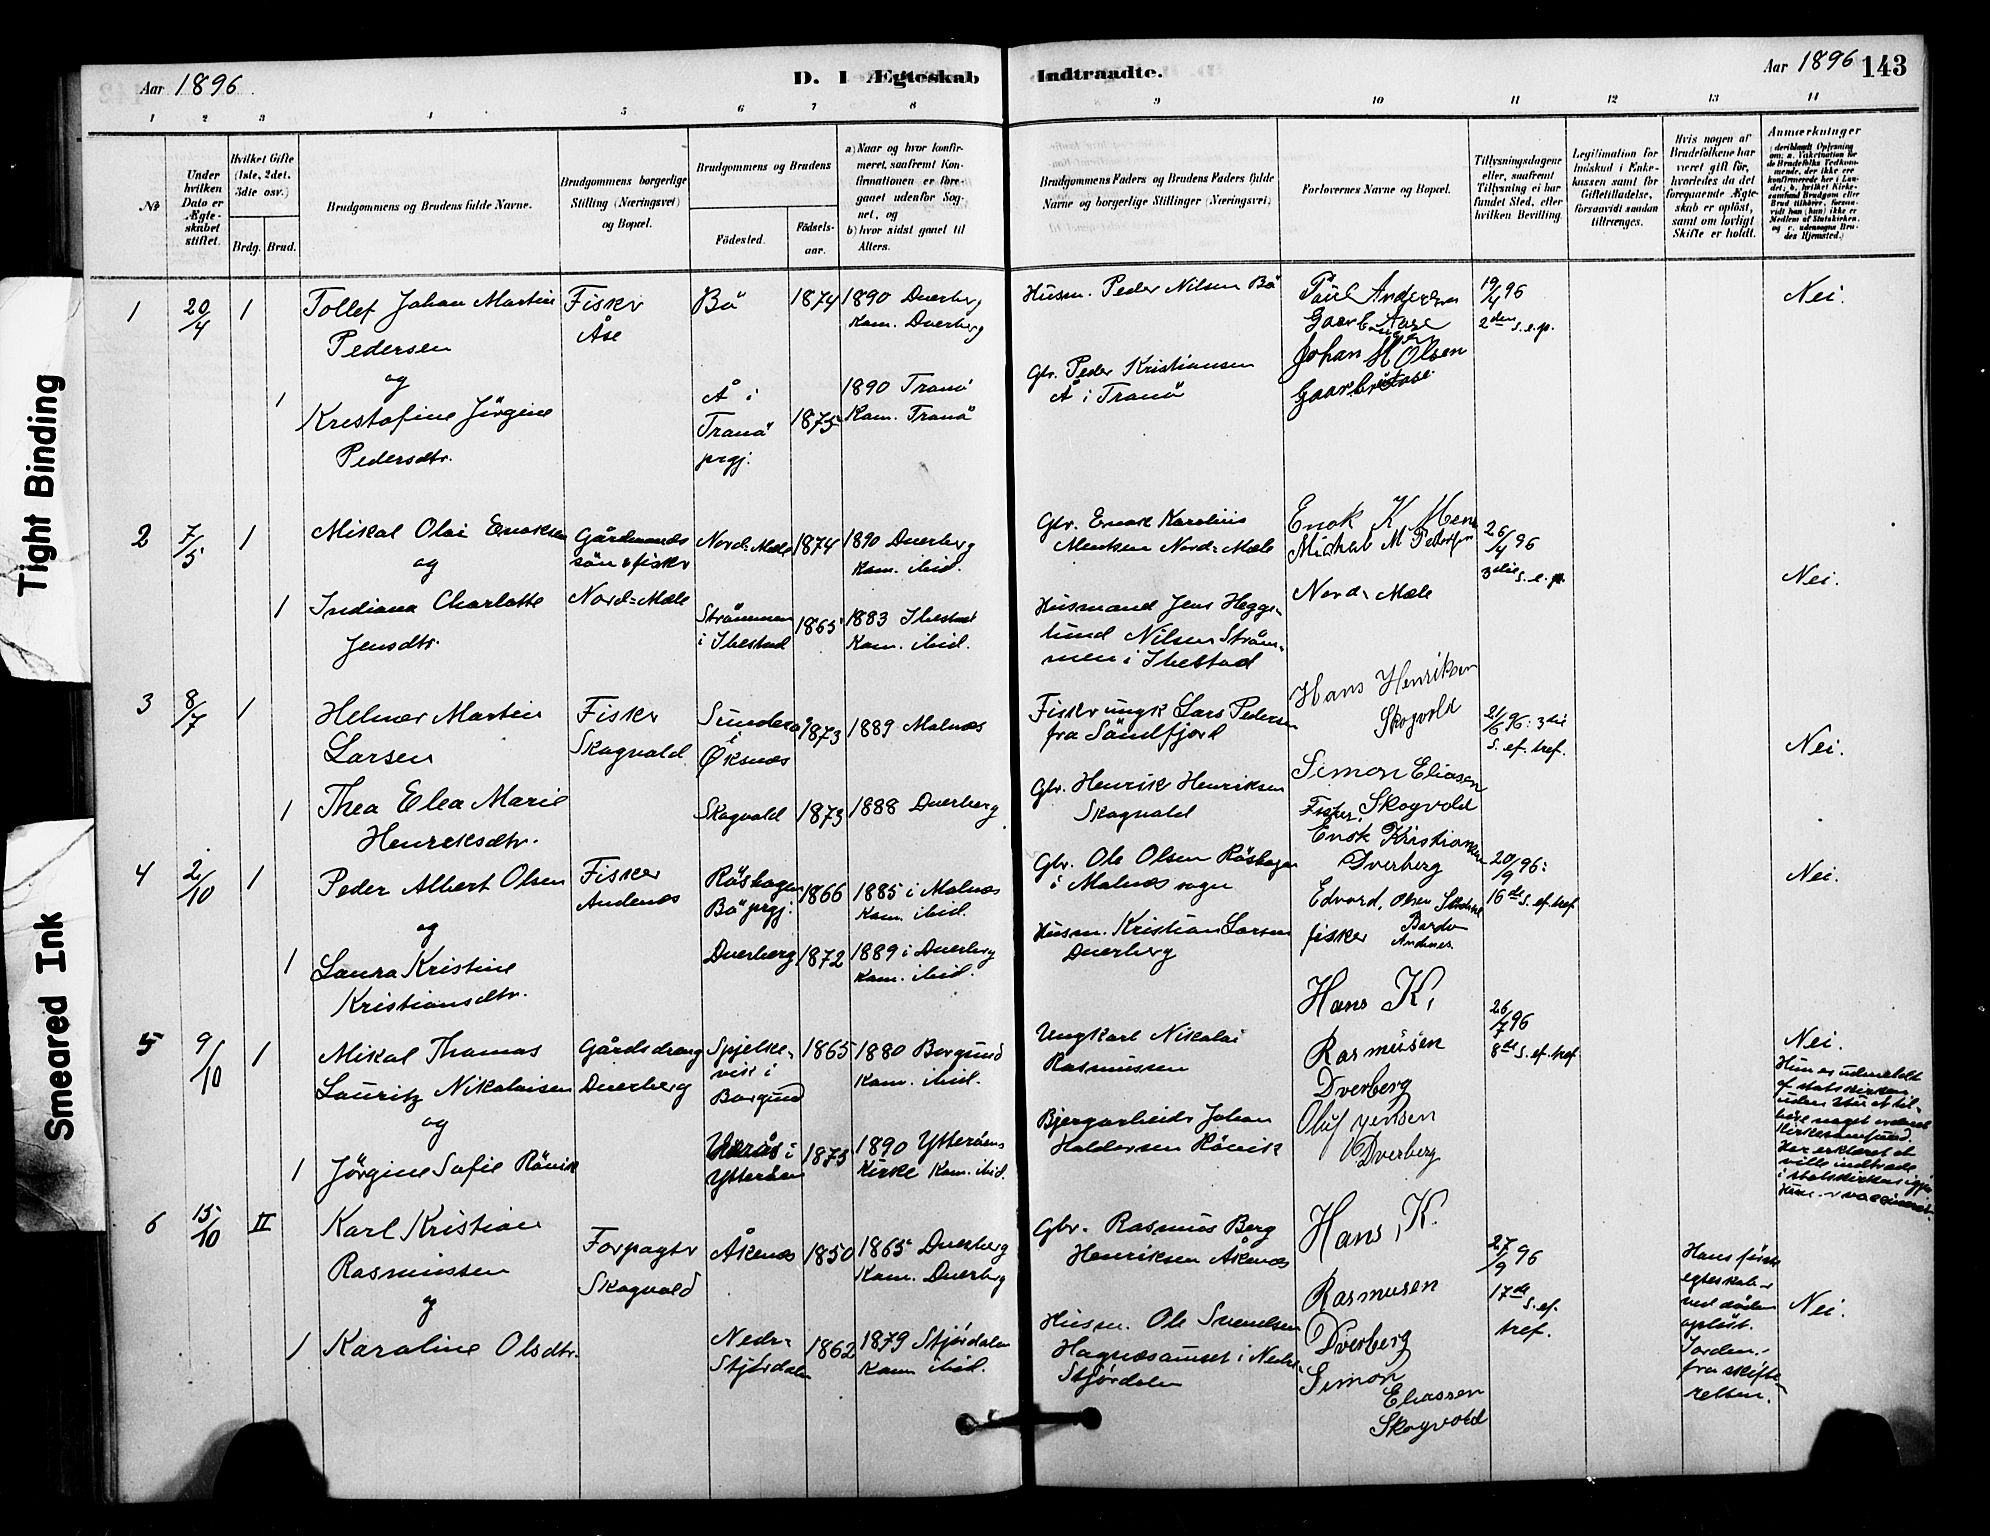 Aar 1896.
D. I Ægteskab Indtraadte.
Aar 1896 143
1 2 3 4 5 6 7 8 9 10 11 12 13 14
No
Under hvilken Dato er Ægteskabet stiftet.
Hvilket Gifte (1ste, 2det, 3die osv.)
Brdg. Brud.
Brudgommens og Brudens fulde Navne.
Brudgommens borgerlige Stilling (Næringsvei) og Bopæl.
Brudgommens og Brudens
Födested.
Födsels-aar.
a) Naar og hvor konfirmeret, saafremt Konfirmationen er foregaaet udenfor Sognet, og
b) hvor sidst gaaet til Alters.
Brudgommens Faders og Brudens Faders fulde Navne og borgerlige Stillinger (Næringsvei)
Forlovernes Navne og Bopæl.
Tillysningsdagene eller, saafremt Tillysning ei har fundet Sted, efter hvilken Bevilling.
Legitimation for Indskud i Enkekassen samt for Giftetilladelse, forsaavidt saadan tiltrænges.
Hvis nogen af Brudefolkene har været gift för, hvorledes da det foregaaende Ægteskab er oplöst, samt om lovligt Skifte er holdt.
Anmærkninger
1 20/4 1
Tollef Johan Martin
Pedersen
og
1 Krestofine Jörgine
Pedersdtr.
Fisker
Åse
Bö 1874
1890 Dverberg
Kom. Dverberg
Å i
Tranö
prgj.
1875
1890 Tranö
Kom. Tranö
Husm. Peder Nilsen Bö
Gbr. Peder Kristiansen
Å i Tranö
Paul Andersen
Gaardbruger Aase
Johan H Olsen
19/4 96
2den s. e. p.
Nei.
2 7/5 1
Mikal Olai Enoksen
og
1 Indiana Charlotte
Jensdtr.
Gårdmands
sön & fisker
Nord-Mæle
Nord-Mæle 1874
1890 Dverberg
Kom. ibid.
Strömmen
i Ibestad
1865
1883 Ibestad
Kom. ibid.
Gbr. Enok Karolius
Mentsen Nord-Mæle
Husmand Jens Hegge-
lund Nilsen Ström-
men i Ibestad
Enok K Mens
Michal M Pedersen
Nord-Mæle
26/4 96
3die s. e. p.
Nei.
3 8/7 1
Helmer Martin
Larsen
1 Thea Elea Marie
Henreksdtr.
Fisker
Skogvold
Sunderö
i
Öksnæs
1873
1889 Malnæs
Skogvold 1873
1888 Dverberg
Fisker ungk Lars Pedersen
fra Söndfjord
Gbr. Henrik Henriksen
Skogvold
Hans Henriksen
Skogvold
Simon Eliasen
Fisker, Skogvold
21/6 96: 3die
s. ef. tref.
Nei.
4 2/10 1
Peder Albert Olsen
og
1 Laura Kristine
Kristiansdtr.
Fisker
Andenæs
Röshagen
Bö prgj:
1866
1885 i Malnæs
Kom. ibid.
Dverberg 1872
1889 i Dverberg
Kom. ibid.
Gbr. Ole Olsen Röshagen
i Malnæs sogn
Husm. Kristian Larsen
Dverberg
Enok Kristiansen
Dverberg
Edvard. Olsen
fisker
Andenes
20/9 96:
16de s. ef. tref
Nei.
5 9/10 1
Mikal Thomas
Lauritz Nikolaisen
og
1 Jörgine Sofie Rönik
Gårdsdreng
Dverberg
Spjelke-
vik i
Borgund
1865
1880 Borgund
Kom. ibid.
i
Ytteröen
1873
1890 Ytteröens
Kirke Kom. ibid.
Ungkarl Nikolai
Rasmussen
Bjergarbeider Johan
Haldorsen Rönik
Hans K,
Rasmusen
Dverberg
Oluf Jensen
Dverberg
26/7 96
8de s. ef. tref.
Nei.
Hun er udmeldt
af statskirken
uden at til-
höre noget
Kirkesamfund.
Har erklæret at
ville indtræde
i statskirken igjen
6 15/10 II
Karl Kristian
Rasmussen
og
1 Karoline Olsdtr.
Forpagter
Skogvold
Åkenæs 1850
1865 Dverberg
Kom. Dverberg
Nedr-
Stjördalen
1862
1879 Stjördalen
Kom ibid.
Gbr. Rasmus Berg
Henriksen Åkenæs
Husm. Ole Svendsen
i Nedre-
Stjördalen
Hans, K.
Rasmusen
Dverberg
Simon
Eliassen
Skogvold
27/9 96
17de s. ef.
tref.
Hans förste
egteskab er
ved döden
oplöst.
fra skifte-
retten.
Nei.
Tight Binding
Smeared Ink